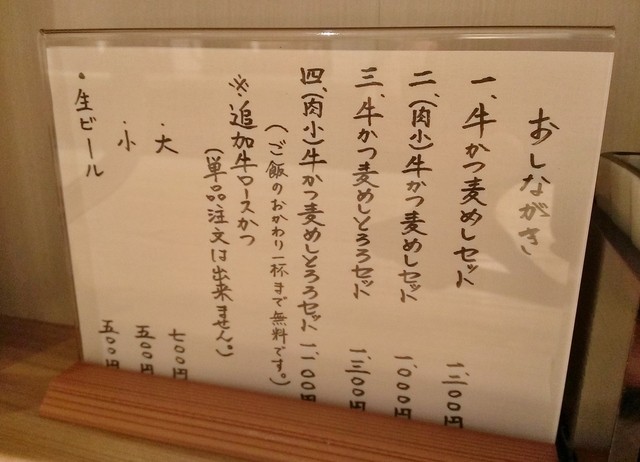 おしながき
一、牛かつ麦めしセット 一、二〇〇円
二、(肉小)牛かつ麦めしセット 一、〇〇〇円
三、牛かつ麦めしとろろセット 一、三〇〇円
四、(肉小)牛かつ麦めしとろろセット 一、一〇〇円
(ご飯のおかわり一杯まで無料です。)
※追加牛ロースかつ
(単品注文は出来ません。)
・大 七〇〇円
・小 五〇〇円
・生ビール 五〇〇円